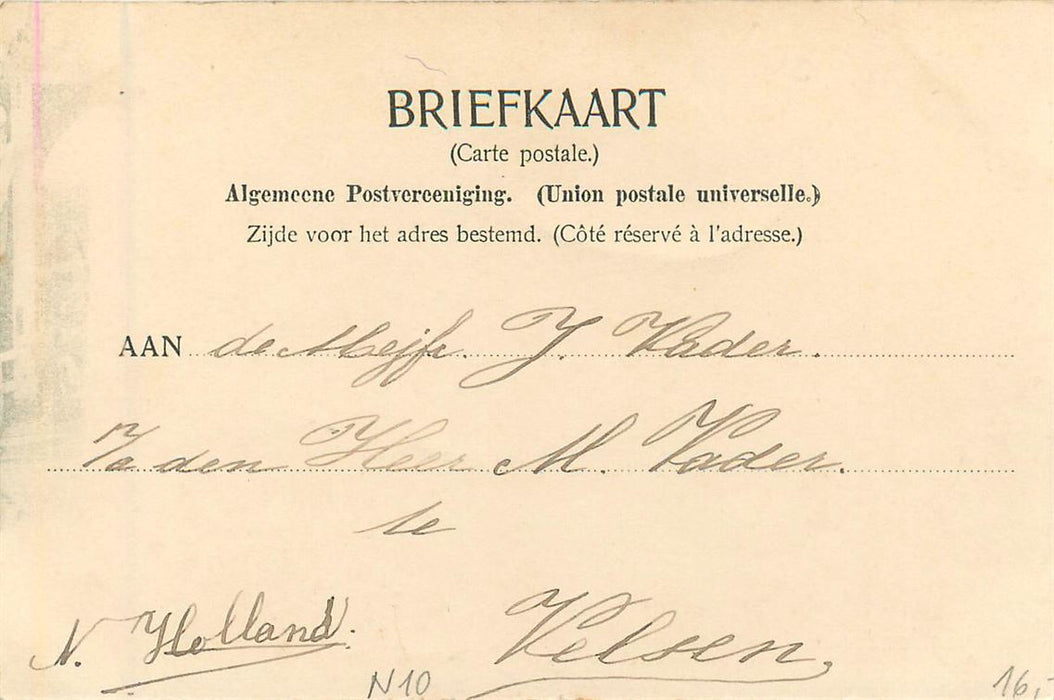 BRIEFKAART
(Carte postale.)
Algemeene Postvereeniging. (Union postale universelle.)
Zijde voor het adres bestemd. (Côté réservé à l'adresse.)
AAN de Mejfr. J. Vader.
den Heer M. Vader.
te
N. Holland. Velsen,
N10 16,-